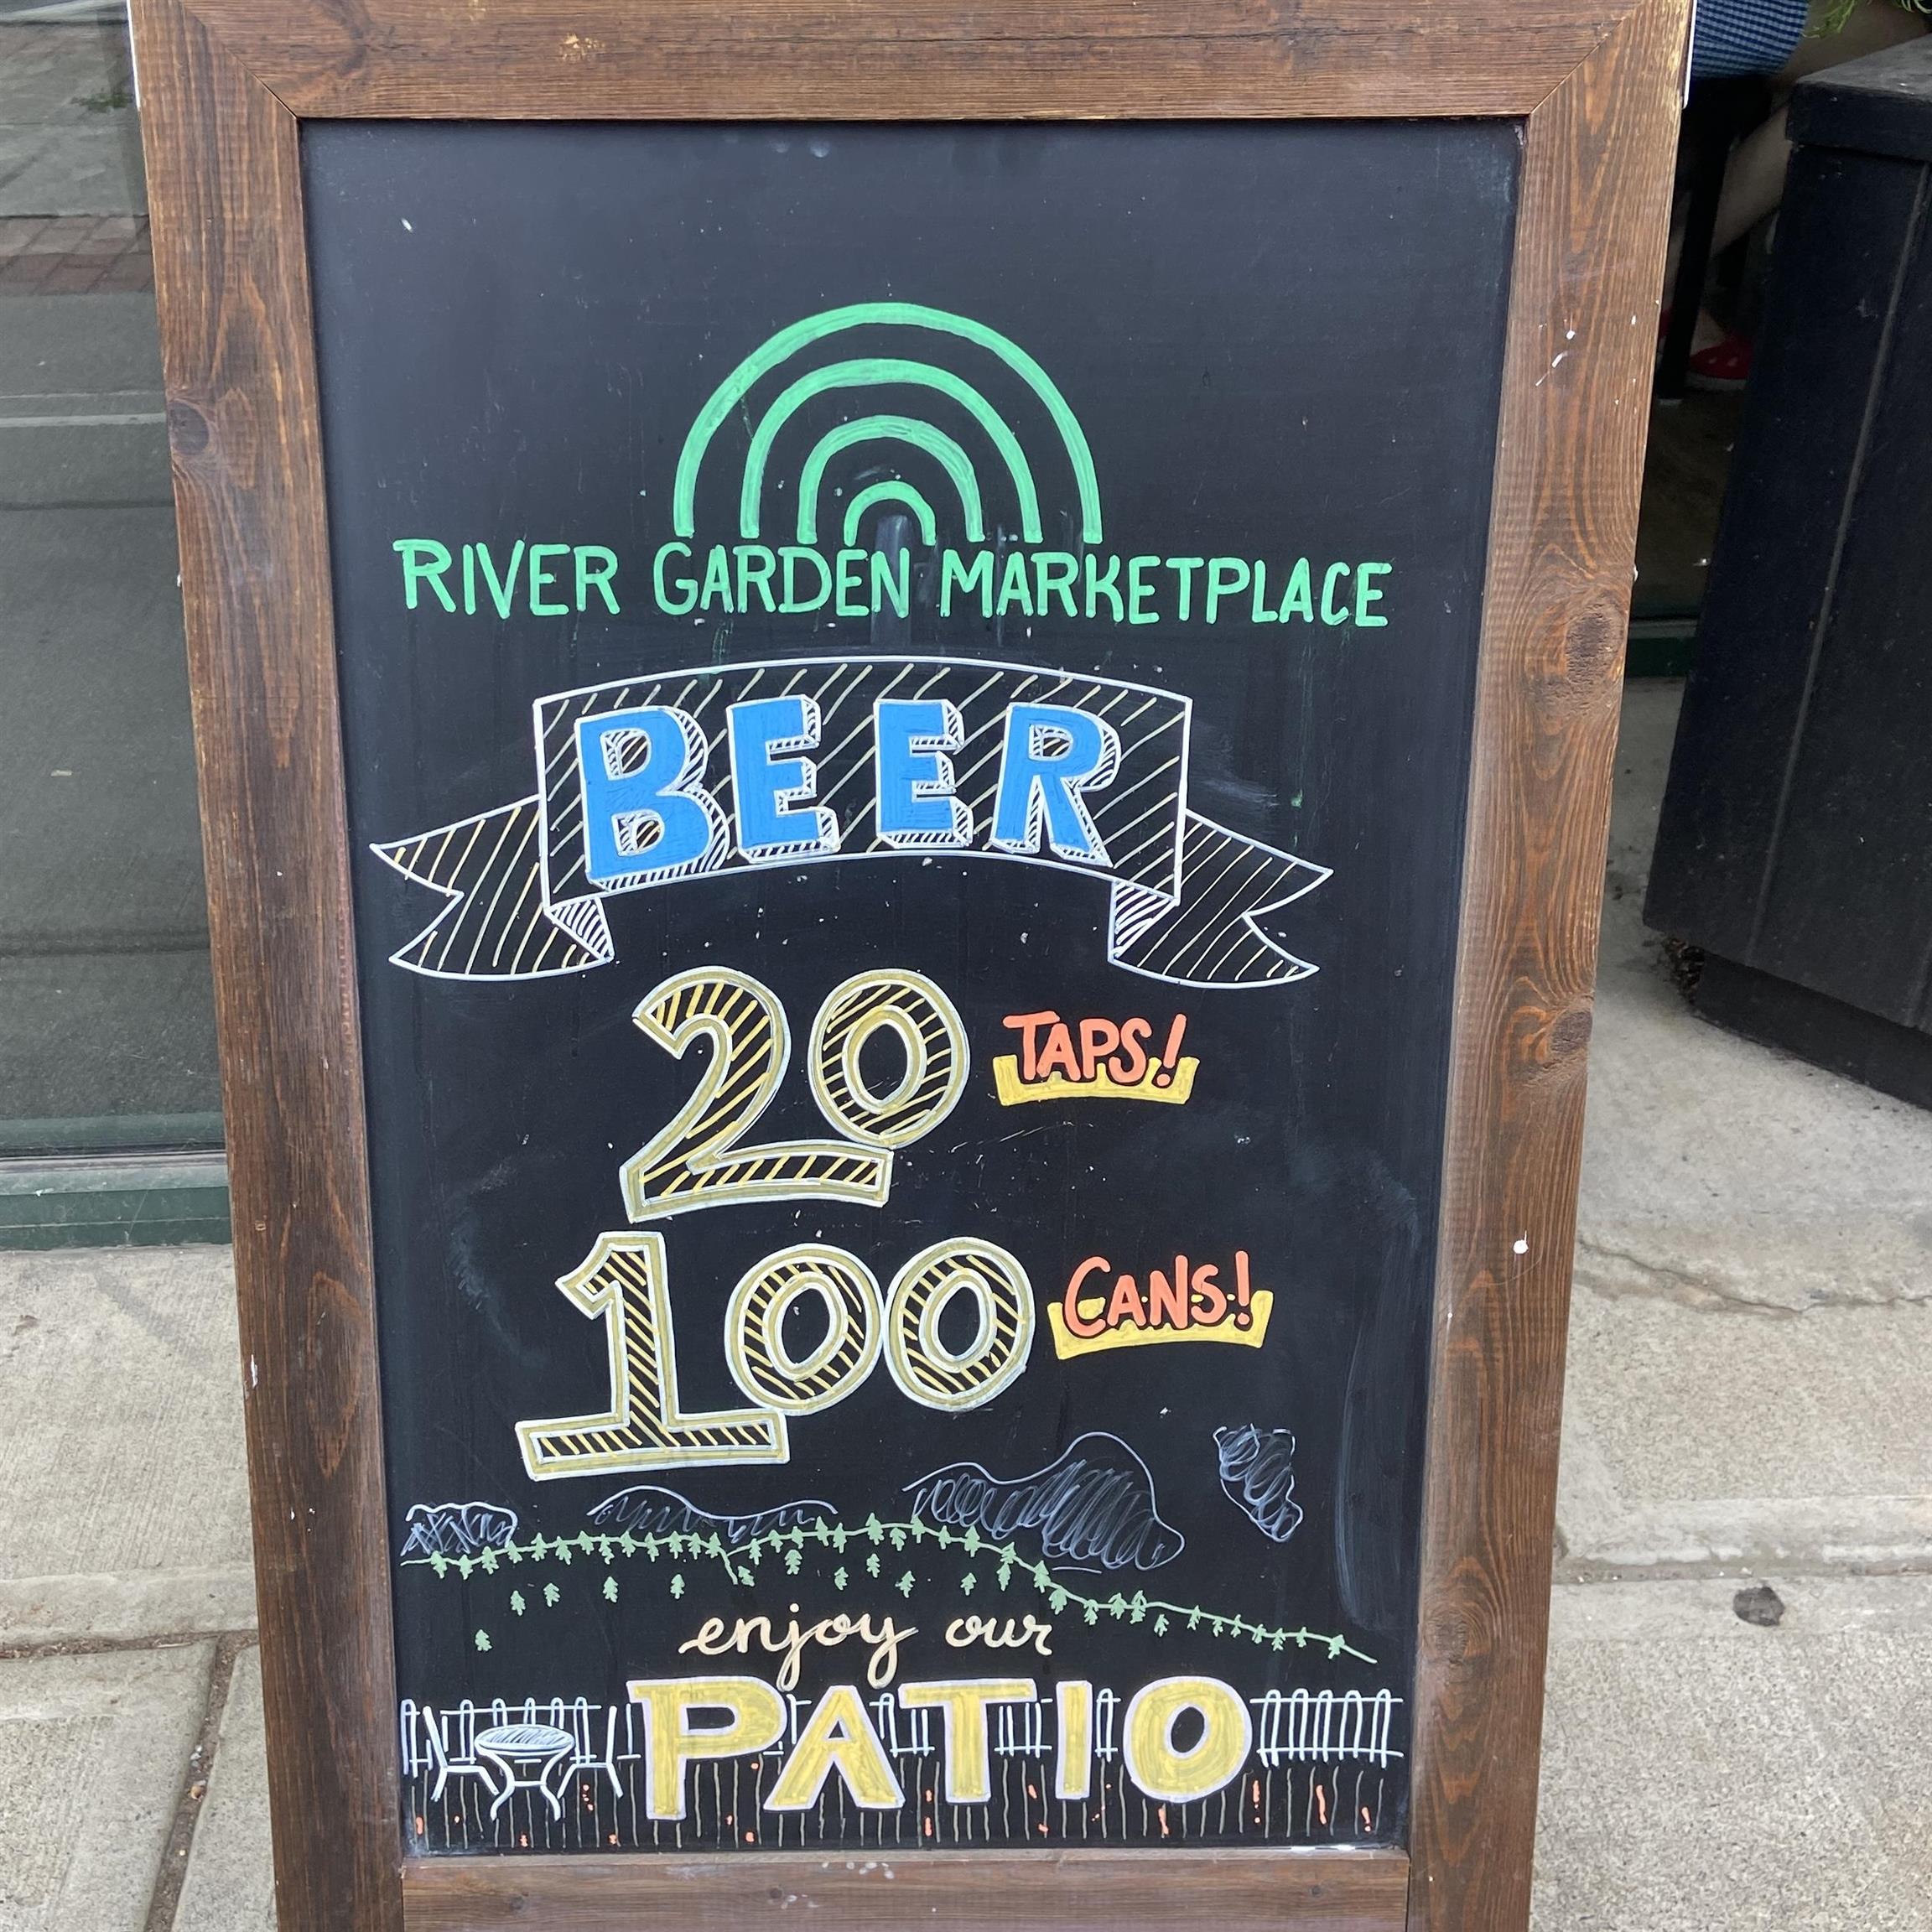 RIVER GARDEN MARKETPLACE
BEER
20 TAPS!
100 CANS!
enjoy our
PATIO